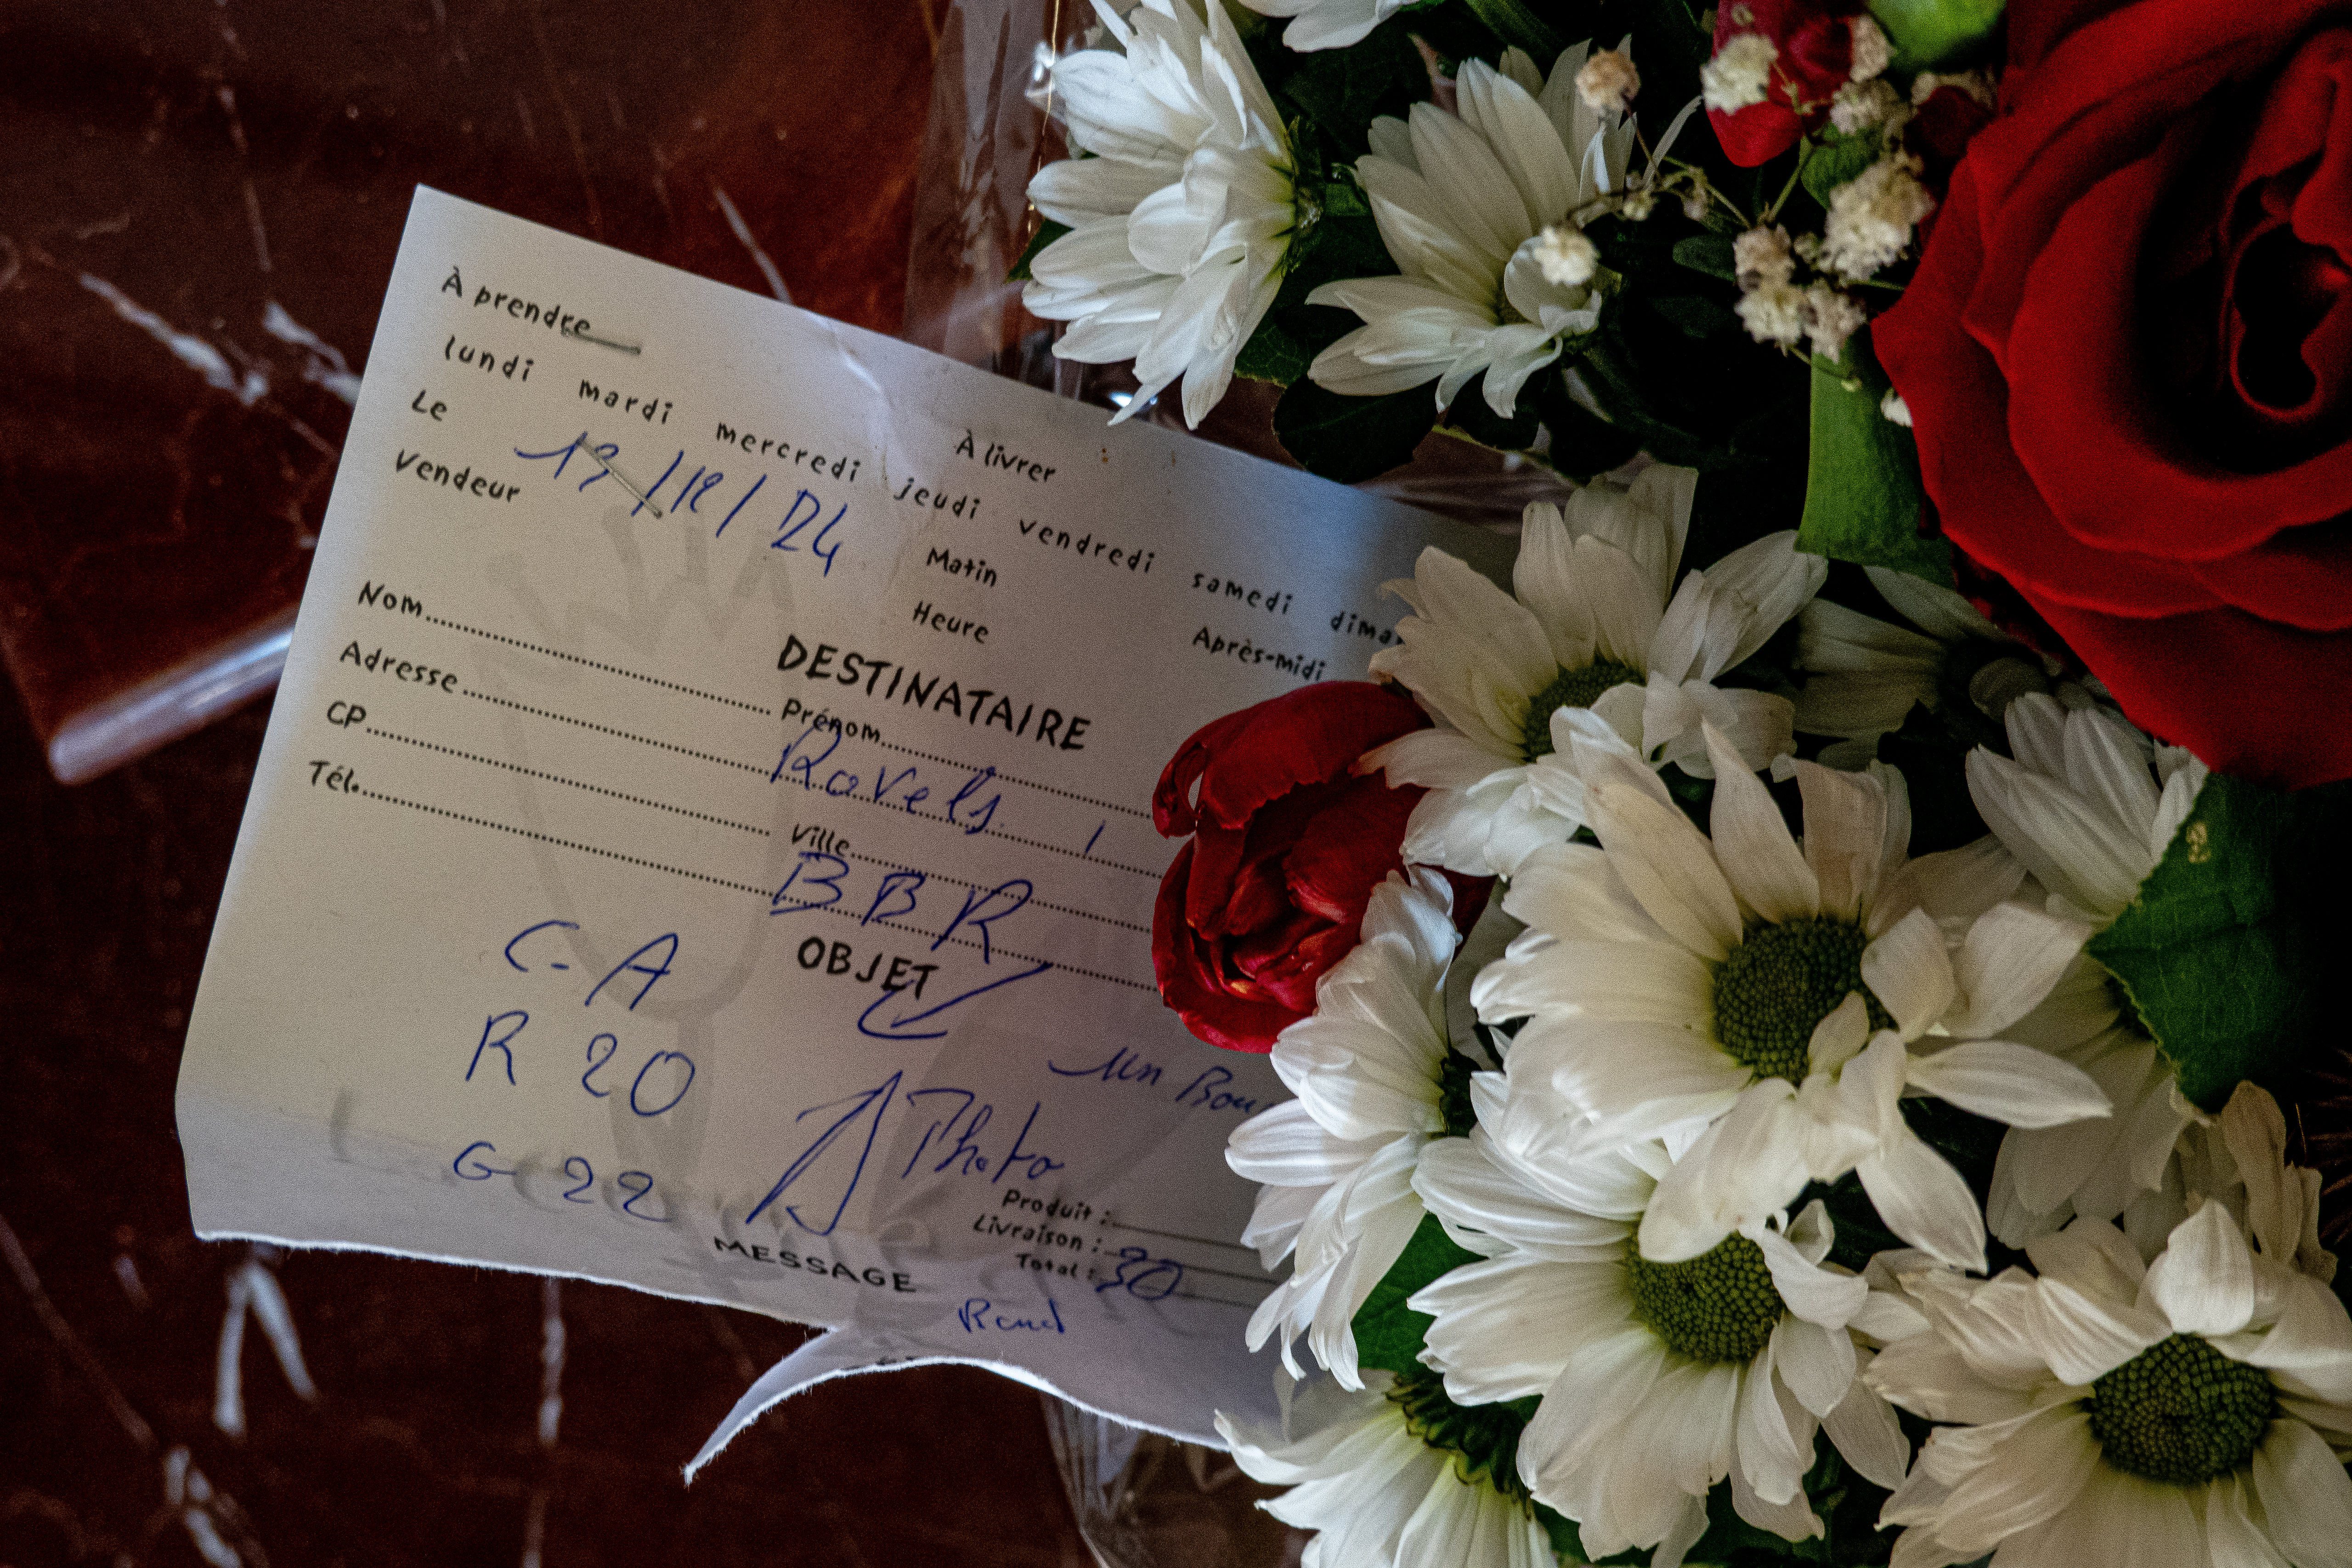 À prendre
À livrer
lundi mardi mercredi jeudi vendredi samedi dima
Le 17/12/24
Matin
Après-midi
Vendeur
Heure
DESTINATAIRE
Nom Prénom
Adresse
CP Ville
Tél. BBR
OBJET
C-A
R 20
G 22
Photo
un Bou
Produit :
Livraison :
Total : 30
MESSAGE